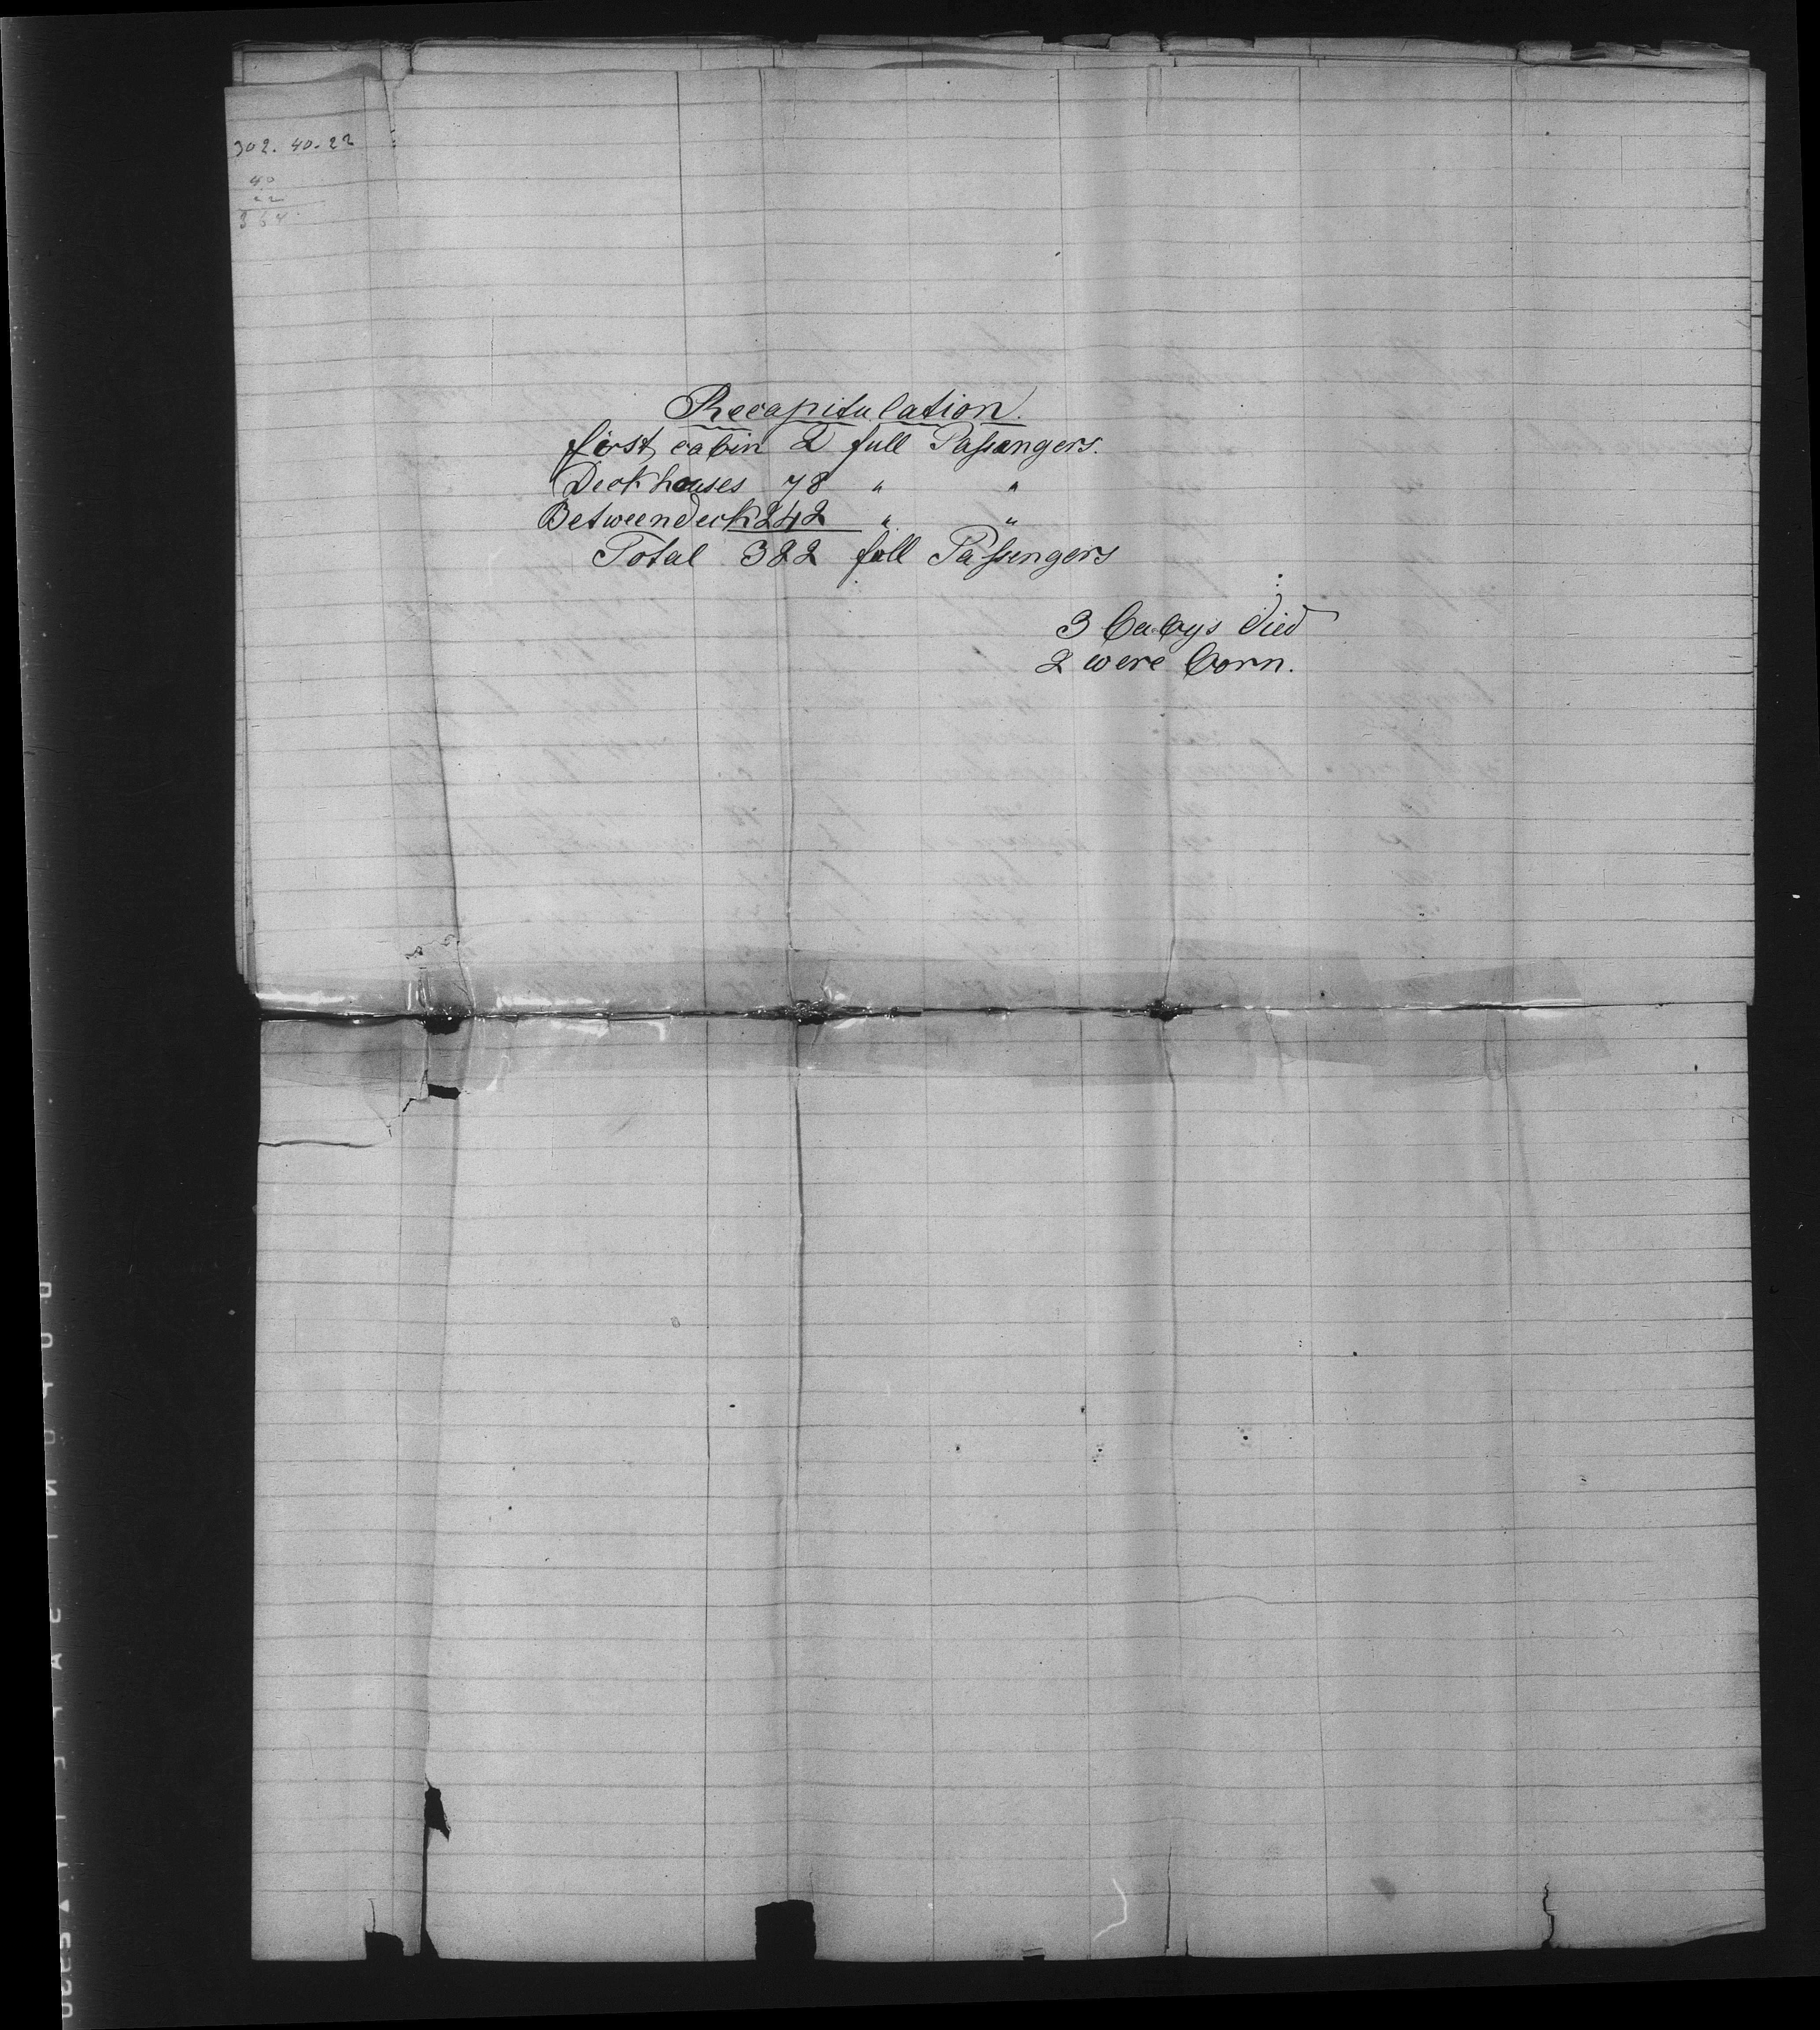 302. 40. 22
40
22
364
Recapitulation.
first cabin 2 full Passangers.
Deckhouses 78 " "
Betweendeck 242 " "
Total 322 full Passengers
3 babys died
2 were born.